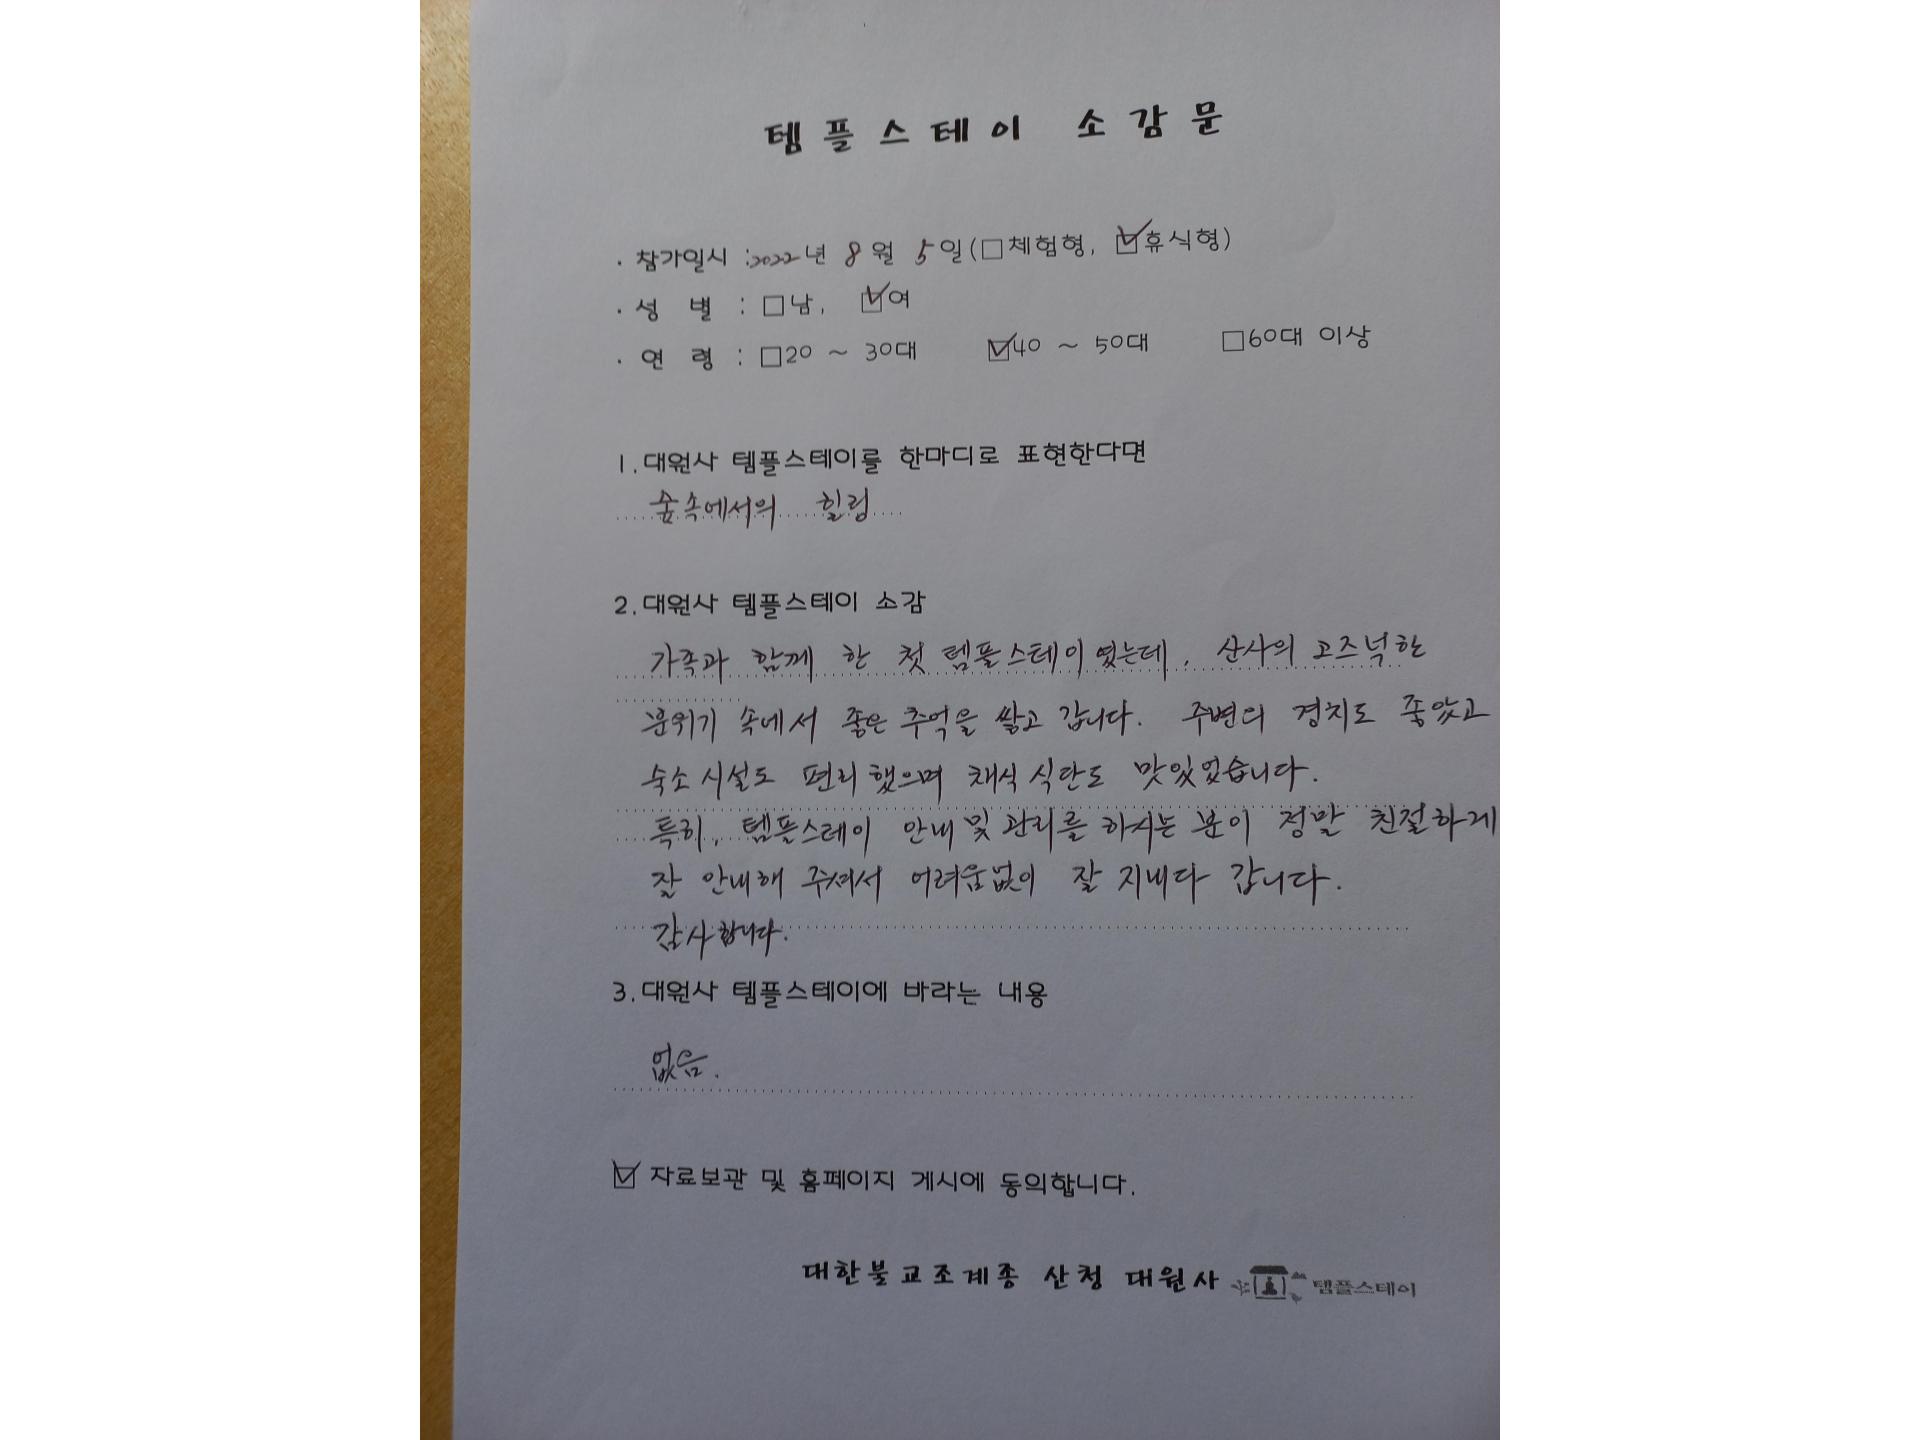 템플스테이 소감문
· 참가일시 :2022년 8월 5일(□체험형, ☑휴식형)
· 성 별 : □남, ☑여
· 연 령 : □20 ~ 30대 ☑40 ~ 50대 □60대 이상
1. 대원사 템플스테이를 한마디로 표현한다면
숲속에서의 힐링
2. 대원사 템플스테이 소감
가족과 함께 한 첫 템플스테이였는데, 산사의 고즈넉한
분위기 속에서 좋은 추억을 쌓고 갑니다. 주변의 경치도 좋았고
숙소 시설도 편리했으며 채식 식단도 맛있었습니다.
특히, 템플스테이 안내 및 관리를 하시는 분이 정말 친절하게
잘 안내해 주셔서 어려움없이 잘 지내다 갑니다.
감사합니다.
3. 대원사 템플스테이에 바라는 내용
없음.
☑ 자료보관 및 홈페이지 게시에 동의합니다.
대한불교조계종 산청 대원사 템플스테이